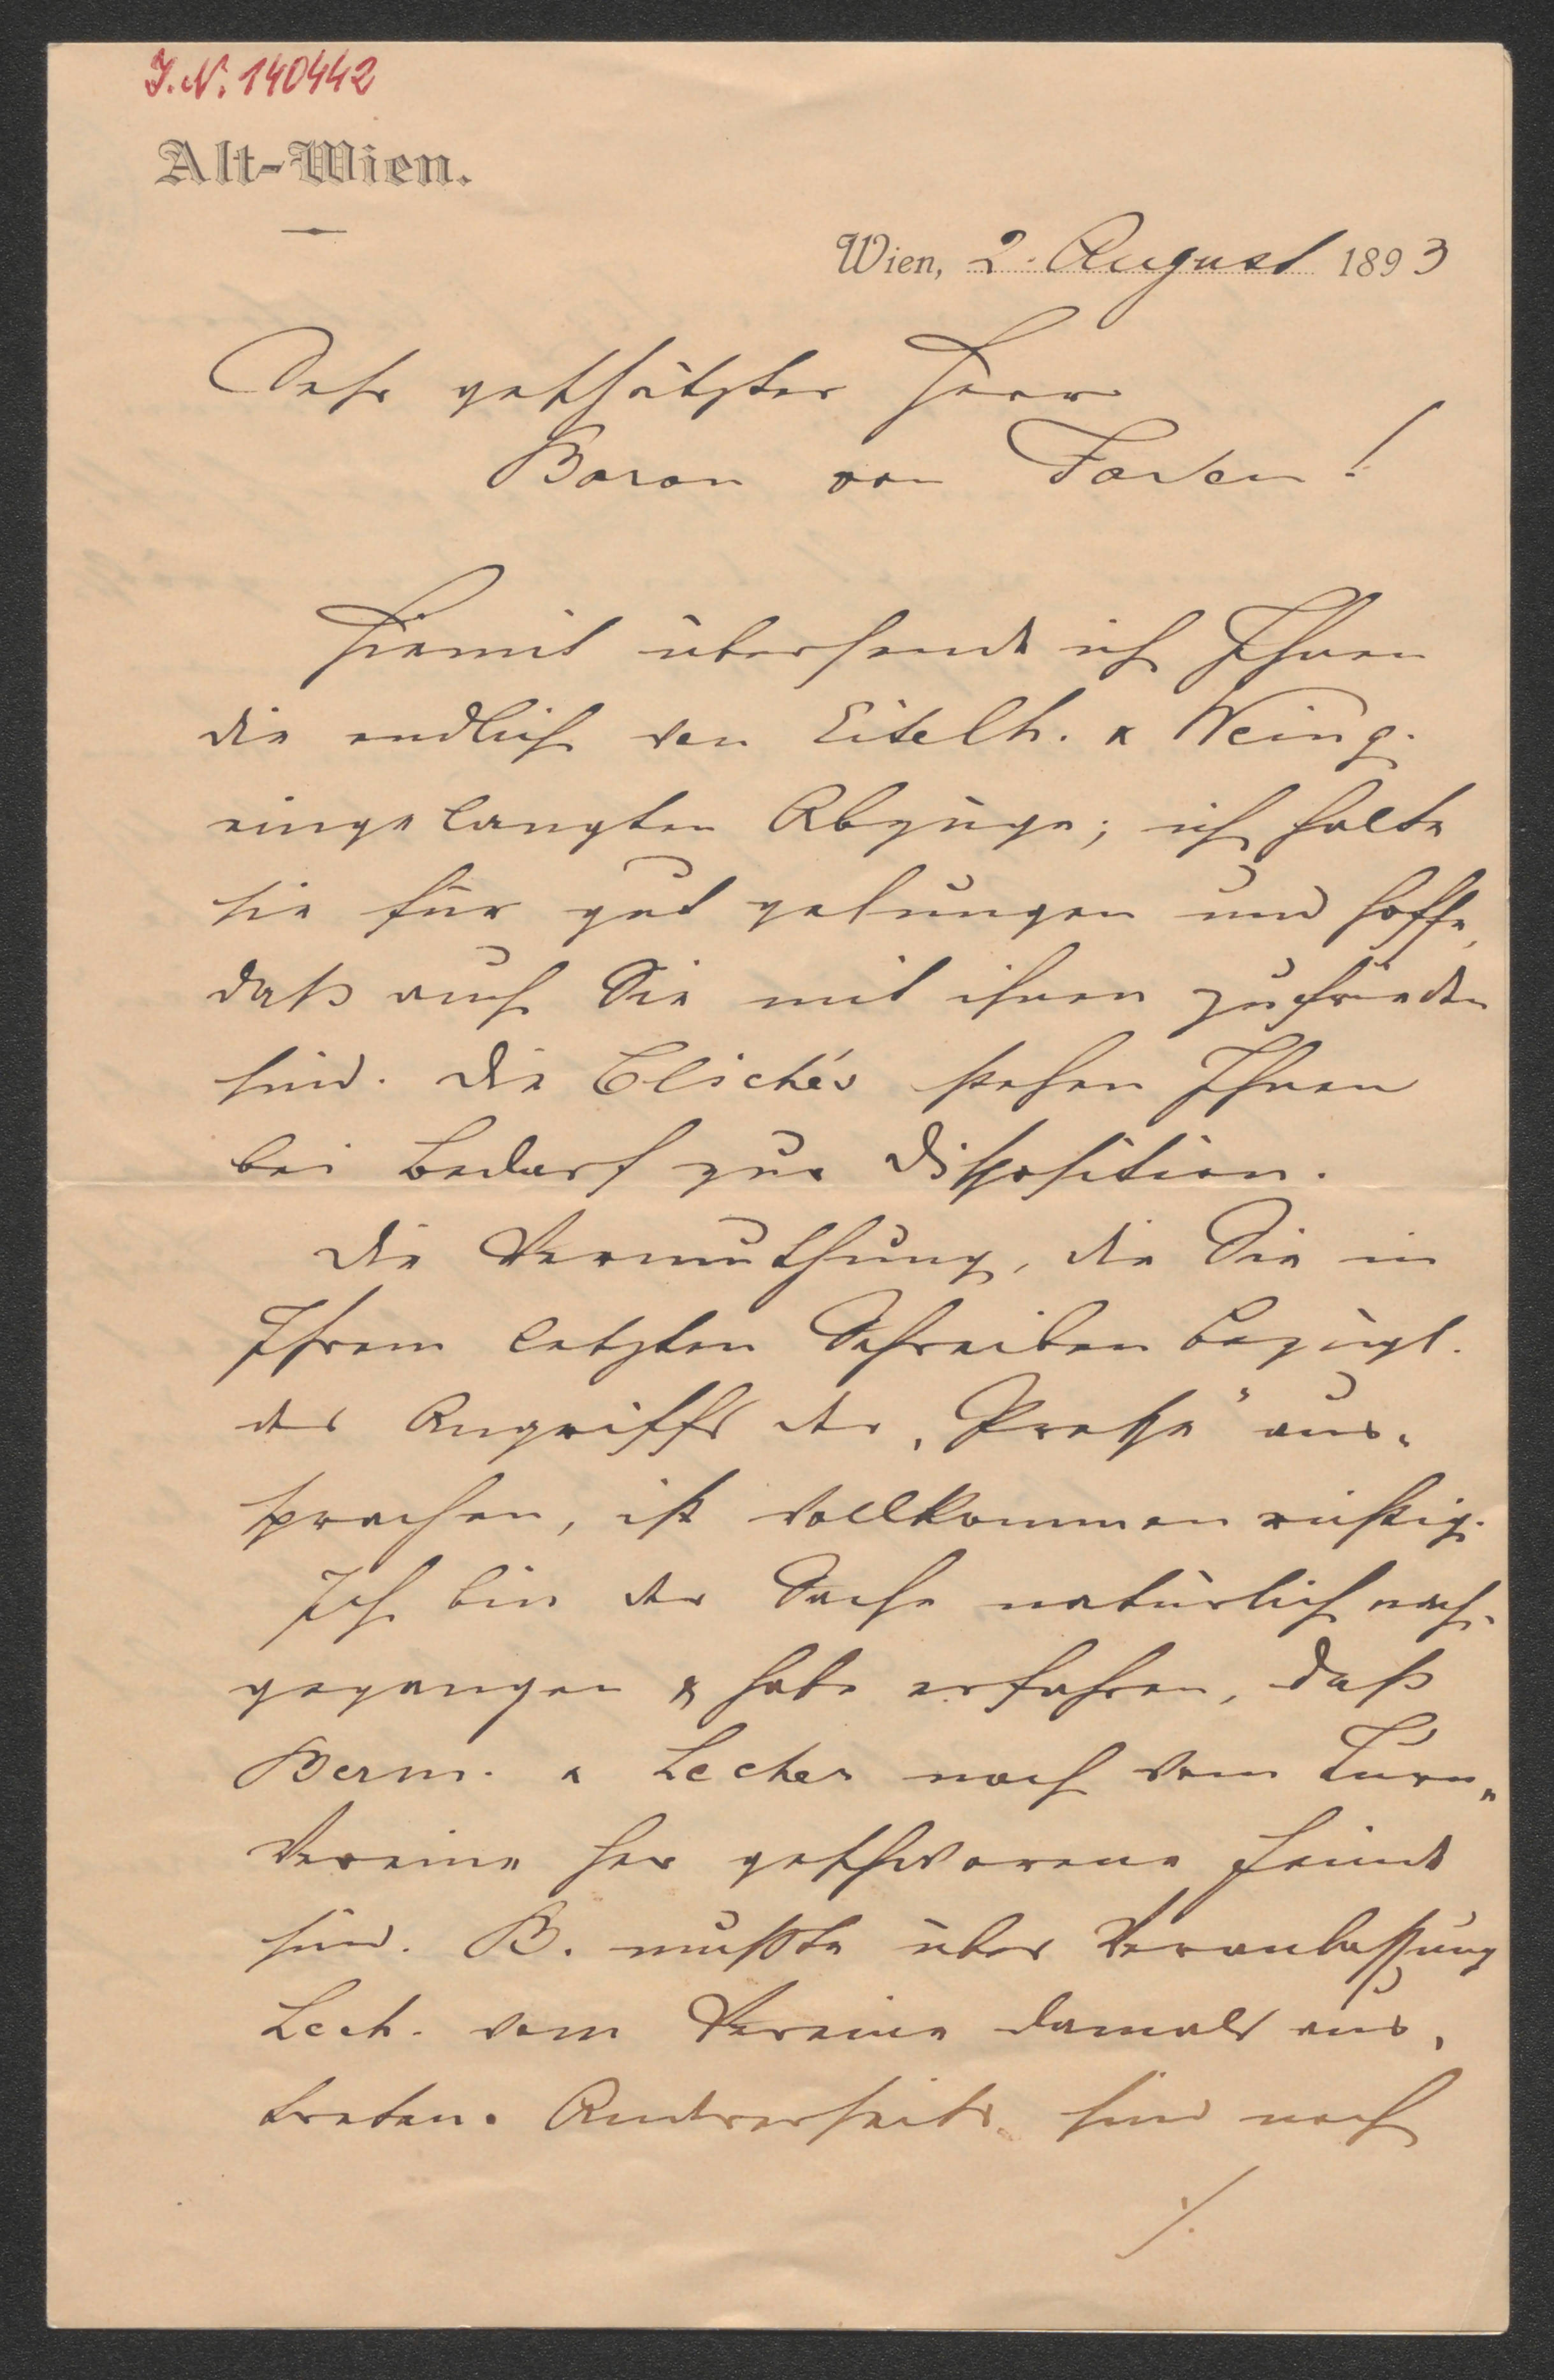 J.N. 140442
Alt-Wien.
Wien, 2. August 1893
Sehr geschätzter Herr
Baron von
Hiemit übersende ich Ihnen
die endlich von Eitelh. & Weing.
eingelangten Abzüge; ich halte
sie für gut gelungen und hoffe,
daß auch Sie mit ihnen zufrieden
sind. Die Clichés stehen Ihnen
bei Bedarf zur Disposition.
Die Vermuthung, die Sie in
Ihrem letzten Schreiben bezügl.
des Angriffs der „Presse" aus-
sprachen, ist vollkommen richtig.
Ich bin der Sache natürlich nach-
gegangen & habe erfahren, daß
Berm. & Lecher noch vom Turn-
vereine her geschworene Feinde
sind. B. mußte über Veranlassung
Lech. vom Vereine damals aus-
treten. Andrerseits sind noch
./.